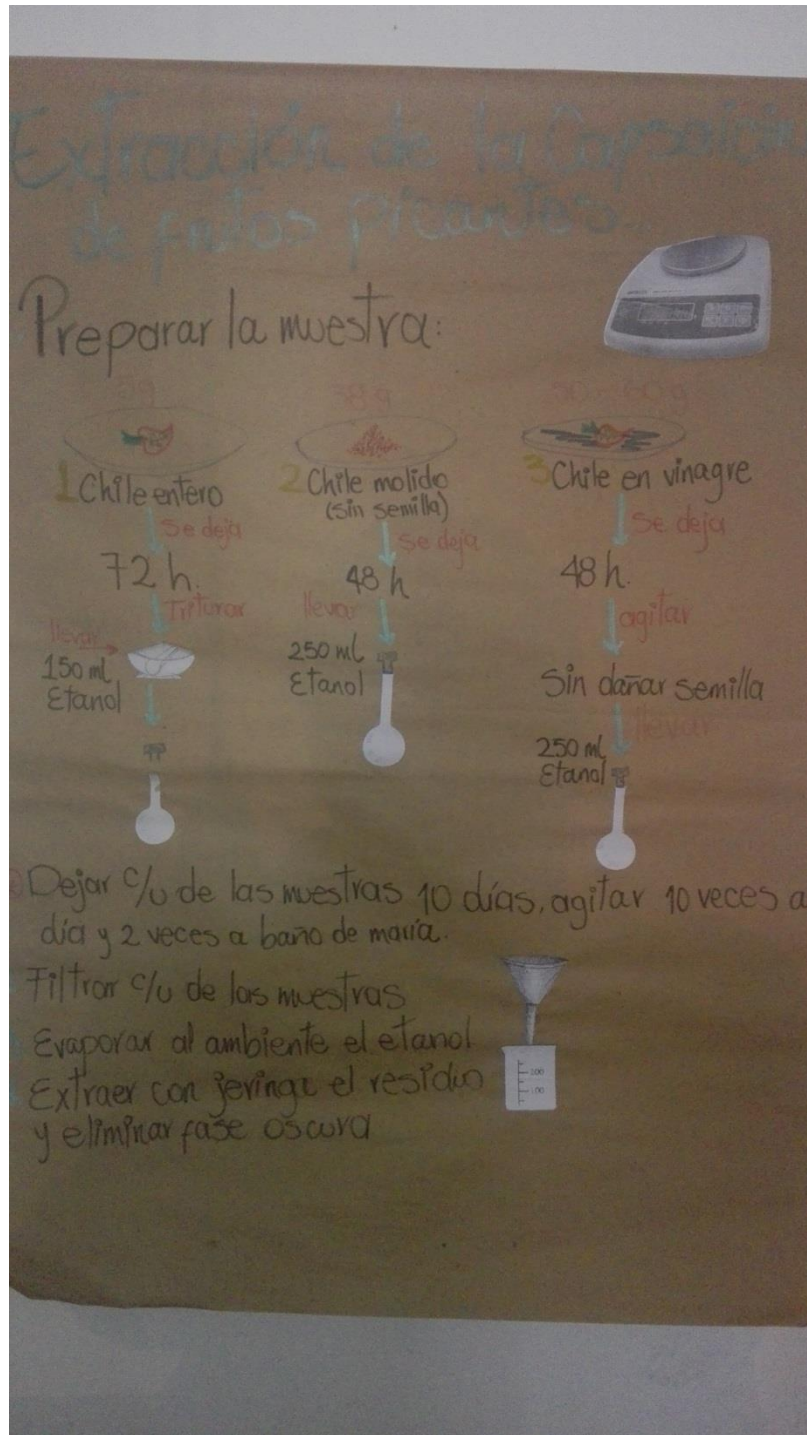 Extracción de la Capsaicin
de frutos picantes.
Preparar la muestra:
1 Chile entero
Se deja
72 h.
Triturar
llevar
150 ml
Etanol
2 Chile molido
(sin semilla)
se deja
48 h
llevar
250 ml
Etanol
3 Chile en vinagre
Se deja
48 h.
agitar
Sin dañar semilla
llevar
250 ml
Etanol
Dejar c/u de las muestras 10 días, agitar 10 veces a
día y 2 veces a baño de maría.
Filtrar c/u de las muestras
Evaporar al ambiente el etanol
Extraer con jeringa el residuo
y eliminar fase oscura